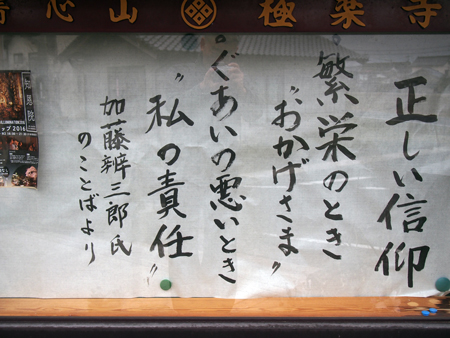 心山 極楽寺
正しい信仰
繁栄のとき
〝おかげさま〟
。ぐあいの悪いとき
〝私の責任〟
加藤辨三郎氏
のことばより
知恩院
2016